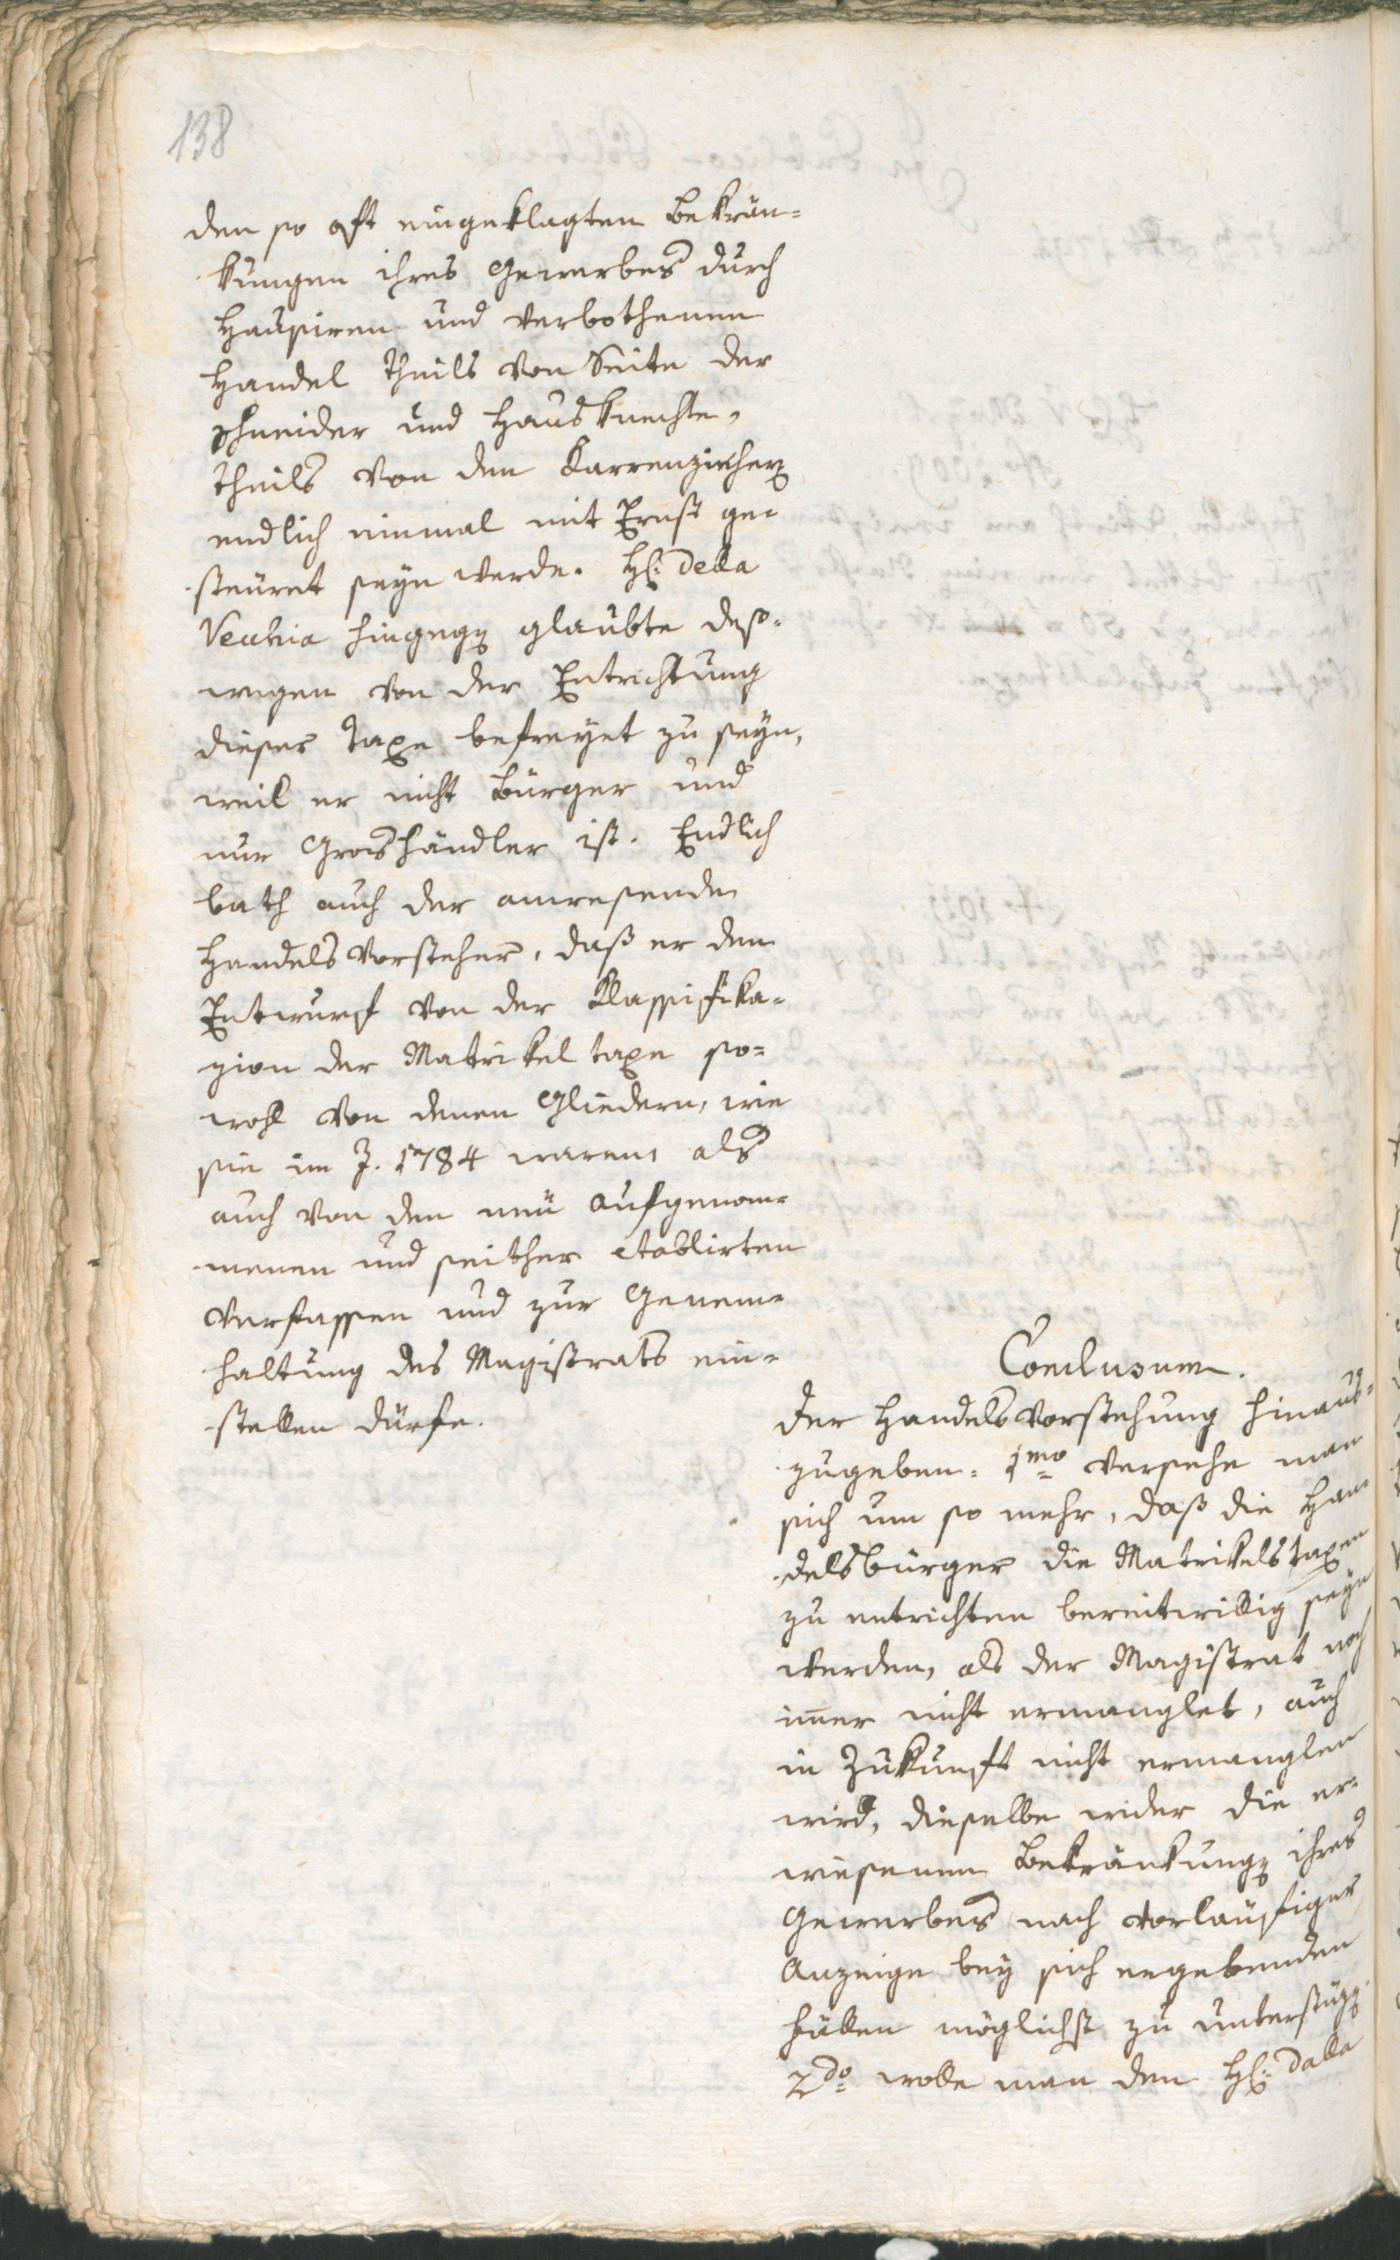 138
den so oft eingeklagten Bekrän=
kungen ihres Gewerbes durch
Hausiren und verbothenen
Handel theils von Seite der
Schneider und Hausknechte,
theils von den Karrenzieher
endlich einmal mit Ernst ge=
steuret seyn werde. H: Della
Vechia hingegen glaubte deß=
wegen von der Entrichtung
dieser Taxe befreyet zu seyn,
weil er nicht Bürger und
nur Großhändler ist. Endlich
bath auch der anwesende
Handelsvorsteher, daß er den
Entwurf von der Klassifika=
zion der Matrikel taxe so=
wohl von denen Gliedern, wie
sie im J. 1784 waren, als
auch von den neü aufgenom=
menen und seither etablirten
verfassen und zur Genem=
haltung des Magistrats ein=
stellen dürfe.
Conclusum.
Der Handelsvorstehung hinaus=
zugeben: 1mo versehe man
sich um so mehr, daß die Han
delsbürger die Matrikelstaxen
zu entrichten bereitwillig seyn
werden, als der Magistrat noch
imer nicht ermanglet, auch
in Zukunft nicht ermanglen
wird, dieselbe wider die er=
wiesenen Bekränkungen ihres
Gewerbes nach vorläufiger
Anzeige bey sich ergebenden
Fällen möglichst zu unterstüzen
2do wolle man den H: Dalla